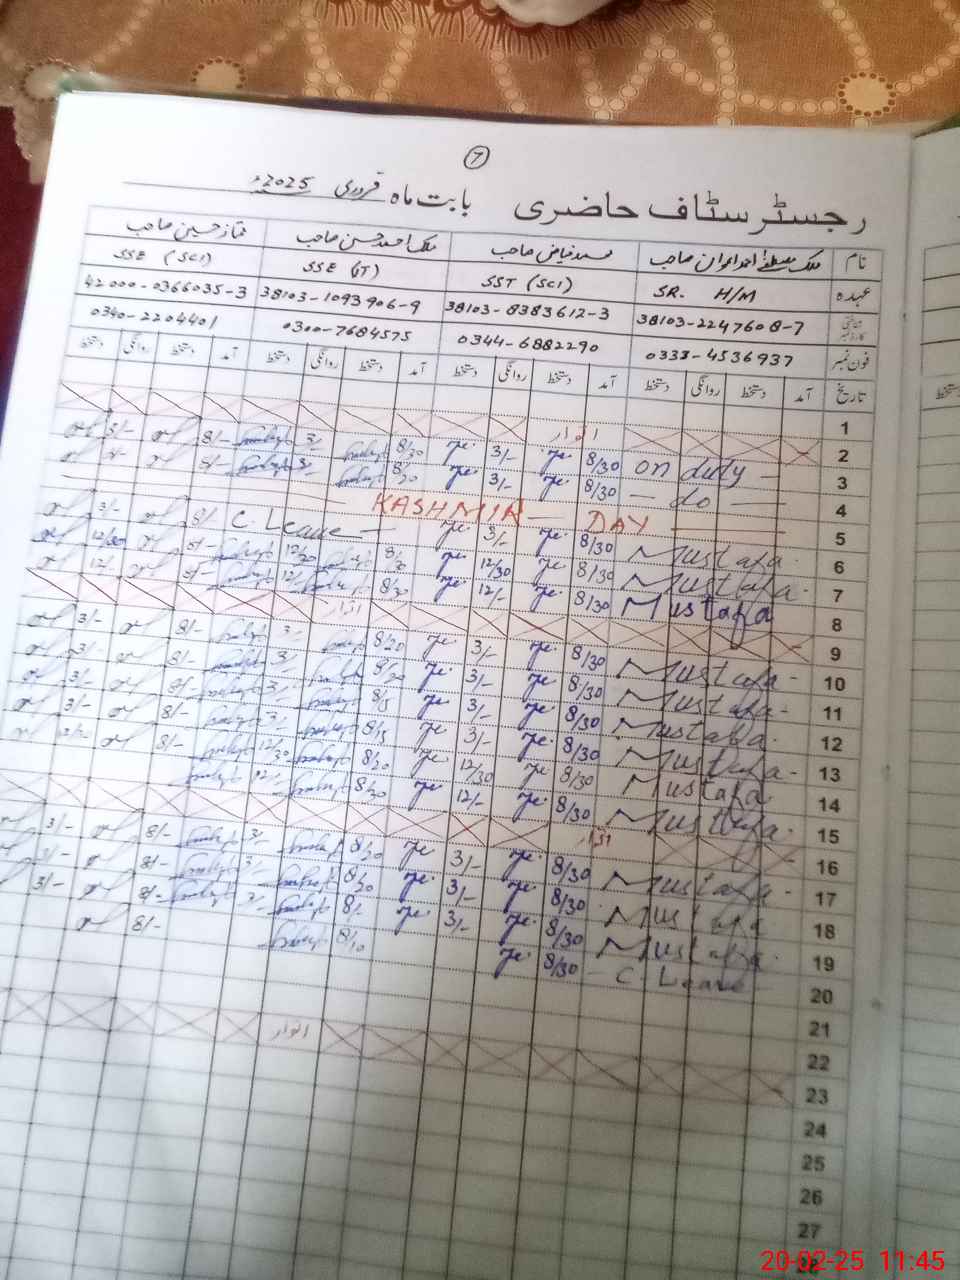 7
رجسٹر سٹاف حاضری بابت ماہ فروری 2025ء
نام ملک مصطفےٰ احمد اعوان صاحب محمد فیاض صاحب ملک احمد حسن صاحب ممتاز حسین صاحب
عہدہ SR. H/M SST (SCI) SSE (IT) SSE (SCI)
شناختی کارڈ نمبر 38103-2247608-7 38103-8383612-3 38103-1093906-9 42000-0366035-3
فون نمبر 0333-4536937 0344-6882290 0300-7684575 0340-2204401
تاریخ آمد دستخط روانگی دستخط آمد دستخط روانگی دستخط آمد دستخط روانگی دستخط آمد دستخط روانگی دستخط
دستخط
1
2 اتوار
3 on duty - 8/30 3/- 8/30 3/- 8/- 3/-
4 - do - 8/30 3/- 8/20 3/- 8/-
5 KASHMIR - DAY
6 Mustafa 8/30 3/- C. Leave - 8/- 3/-
7 Mustafa 8/30 12/30 12/30 8/- 12/30
8 Mustafa 8/30 12/- 8/20 12/- 8/- 12/-
9 اتوار
10 Mustafa 8/30 3/- 8/20 3/- 8/- 3/-
11 Mustafa 8/30 3/- 8/20 3/- 8/- 3/-
12 Mustafa 8/30 3/- 8/15 3/- 8/- 3/-
13 Mustafa 8/30 3/- 8/15 3/- 8/- 3/-
14 Mustafa 8/30 12/30 8/20 12/30 8/-
15 Mustafa 8/30 12/- 8/20 12/-
16 اتوار
17 Mustafa 8/30 3/- 8/20 3/- 8/- 3/-
18 Mustafa 8/30 3/- 8/20 3/- 8/- 3/-
19 Mustafa 8/30 3/- 8/- 3/- 8/- 3/-
20 C. Leave 8/30 8/10 8/-
21
22
23 اتوار
24
25
26
27
28
20-02-25 11:45